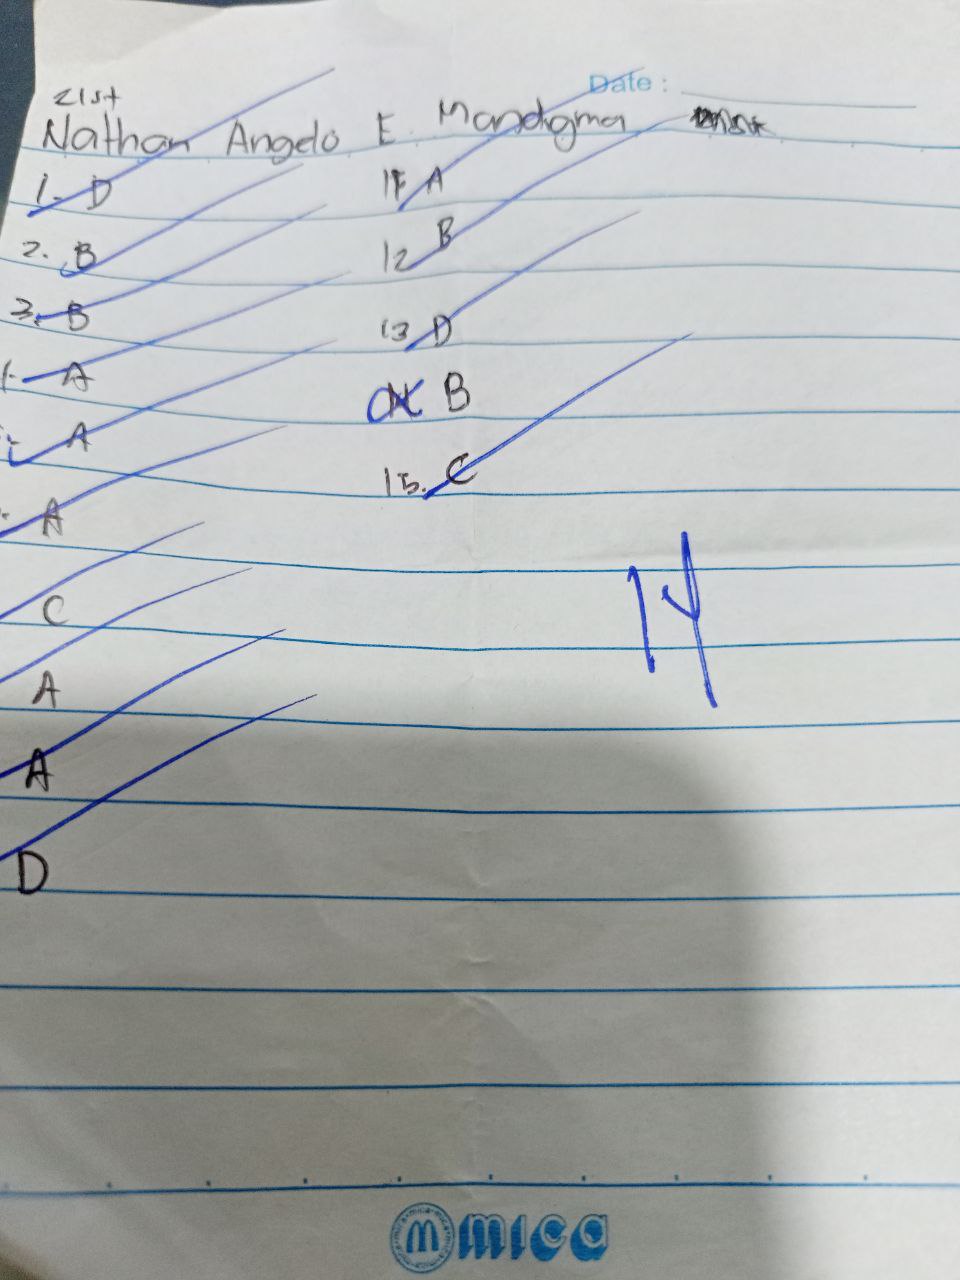 Date :
21st
Nathan Angelo E. Mandigma
1. D
2. B
3. B
A
A
A
C
A
A
D
11 A
12 B
13 D
B
15. C
14
mica